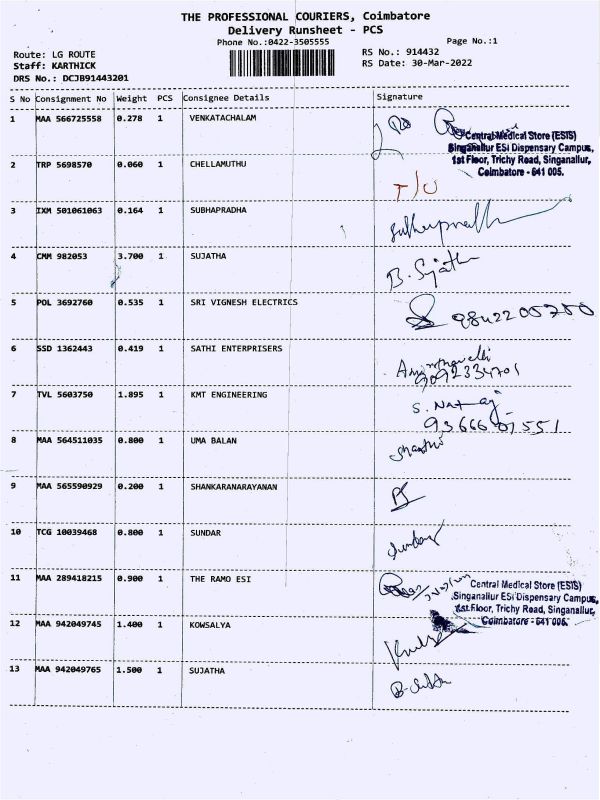 THE PROFESSIONAL COURIERS, Coimbatore
Delivery Runsheet - PCS
Phone No.:0422-3505555
Page No.:1
Route: LG ROUTE
RS No.: 914432
Staff: KARTHICK
RS Date: 30-Mar-2022
DRS No.: DCJB91443201
S No Consignment No Weight PCS Consignee Details Signature
1 MAA 566725558 0.278 1 VENKATACHALAM
Central Medical Store (ESIS)
Singanallur ESI Dispensary Campus,
1st Floor, Trichy Road, Singanallur,
Coimbatore - 641 005.
2 TRP 5698570 0.060 1 CHELLAMUTHU
T/U
3 IXM 501061063 0.164 1 SUBHAPRADHA
4 CMM 982053 3.700 1 SUJATHA
B. Sujath
5 POL 3692760 0.535 1 SRI VIGNESH ELECTRICS
9842200750
6 SSD 1362443 0.419 1 SATHI ENTERPRISERS
9092334701
7 TVL 5603750 1.895 1 KMT ENGINEERING
S. Nataraj
9366601551
8 MAA 564511035 0.800 1 UMA BALAN
9 MAA 565590929 0.200 1 SHANKARANARAYANAN
10 TCG 10039468 0.800 1 SUNDAR
11 MAA 289418215 0.900 1 THE RAMO ESI
Central Medical Store (ESIS)
Singanallur ESI Dispensary Campus,
1st Floor, Trichy Road, Singanallur,
Coimbatore - 641 005.
12 MAA 942049745 1.400 1 KOWSALYA
13 MAA 942049765 1.500 1 SUJATHA